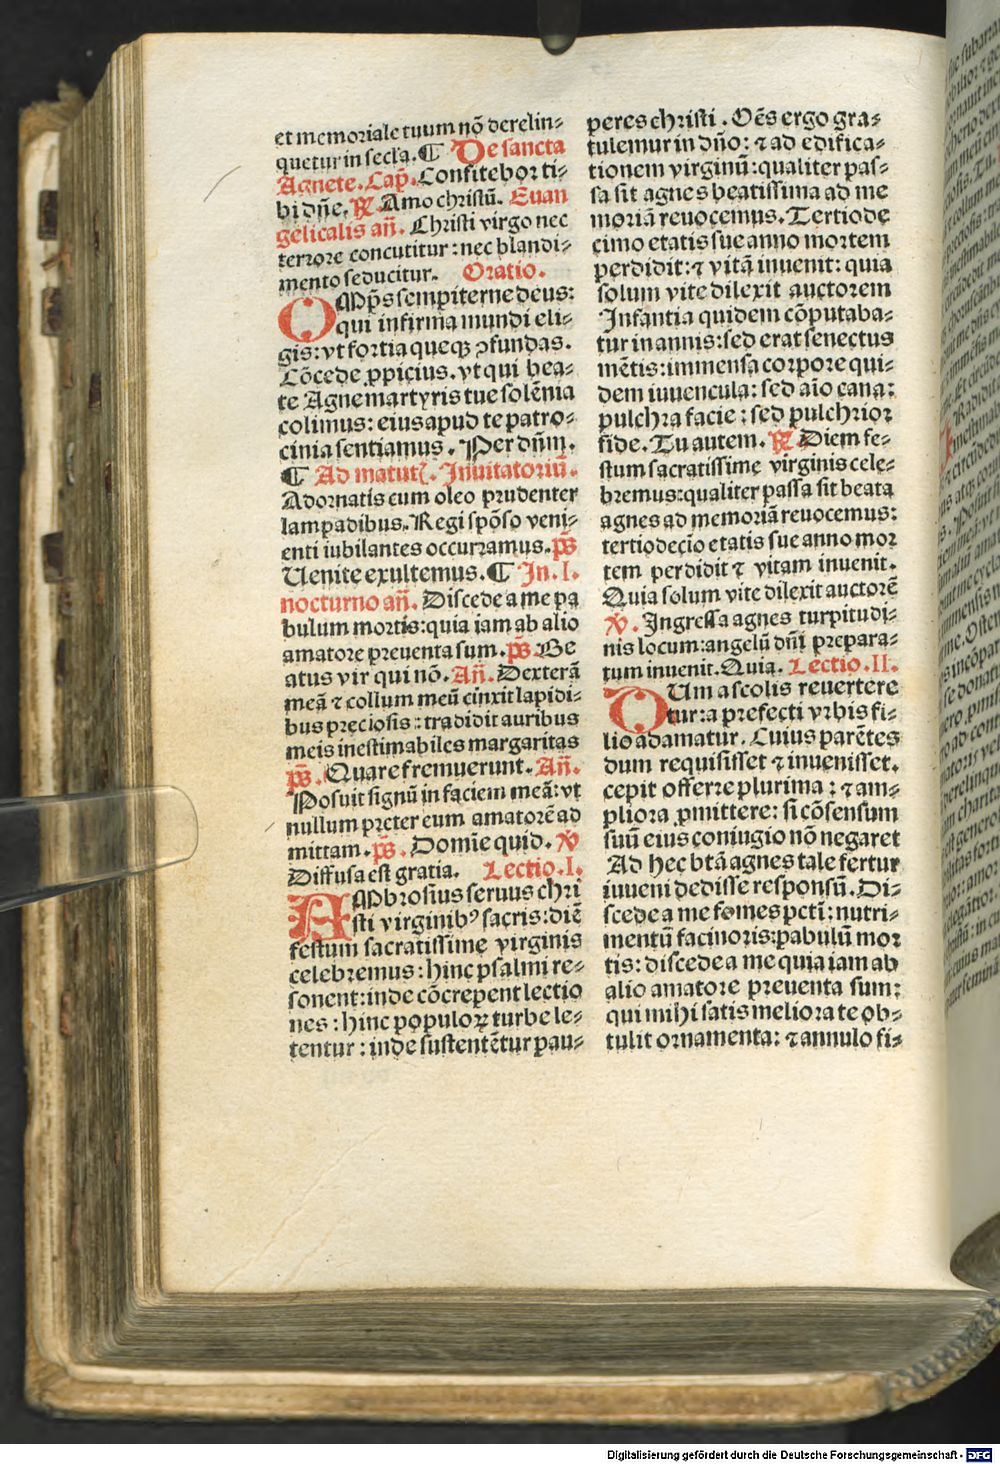 et memoriale tuum nõ derelin⸗
quetur in secľa. ¶ De sancta
Agnete. Cap̃. Confitebor ti⸗
bi dñe. ℟ Amo christũ. Euan
gelicalis añ. Christi virgo nec
terrore concutitur: nec blandi⸗
mento seducitur. Oratio.
OMp̃s sempiterne deus:
qui infirma mundi eli⸗
gis: vt fortia queqꝫ ↄfundas.
Cõcede ꝓpicius. vt qui bea⸗
te Agne martyris tue solẽnia
colimus: eius apud te patro⸗
cinia sentiamus. Per dñm.
¶ Ad matut̃. Inuitatoriũ.
Adornatis eum oleo prudenter
lampadibus. Regi spõso veni⸗
enti iubilantes occurramus. p̃s
Uenite exultemus. ¶ In. I.
nocturno añ. Discede a me pa
bulum mortis: quia iam ab alio
amatore preuenta sum. p̃s. Be
atus vir qui nõ. Añ. Dexterã
meã ⁊ collum meũ cinxit lapidi⸗
bus preciosis: tradidit auribus
meis inestimabiles margaritas
p̃s. Quare fremuerunt. Añ.
Posuit signũ in faciem meã: vt
nullum preter eum amatorẽ ad
mittam. p̃s. Domĩe quid. ℣
Diffusa est gratia. Lectio. I.
AMbrosius seruus chri
sti virginibꝰ sacris: diẽ
festum sacratissime virginis
celebremus: hinc psalmi re⸗
sonent: inde cõcrepent lectio
nes: hinc populoꝝ turbe le⸗
tentur: inde sustentẽtur pau⸗
peres christi. Oẽs ergo gra⸗
tulemur in dño: ⁊ ad edifica⸗
tionem virginũ: qualiter pas⸗
sa sit agnes beatissima ad me
moriã reuocemus. Tertiode
cimo etatis sue anno mortem
perdidit: ⁊ vitã inuenit: quia
solum vite dilexit auctorem
Infantia quidem cõputaba⸗
tur in annis: sed erat senectus
mẽtis: immensa corpore qui⸗
dem iuuencula: sed aĩo cana:
pulchra facie: sed pulchrior
fide. Tu autem. ℟ Diem fe⸗
stum sacratissime virginis cele⸗
bremus: qualiter passa sit beata
agnes ad memoriã reuocemus:
tertiodecĩo etatis sue anno mor
tem perdidit ⁊ vitam inuenit.
Quia solum vite dilexit auctorẽ
℣. Ingressa agnes turpitudi⸗
nis locum: angelũ dñi prepara⸗
tum inuenit. Quia. Lectio. II.
DUm a scolis reuertere
tur: a prefecti vrbis fi⸗
lio adamatur. Cuius parẽtes
dum requisisset ⁊ inuenisset.
cepit offerre plurima: ⁊ am⸗
pliora ꝓmittere: si cõsensum
suũ eius coniugio nõ negaret
Ad hec btã agnes tale fertur
iuueni dedisse responsũ. Di⸗
scede a me fomes pctĩ: nutri⸗
mentũ facinoris: pabulũ mor
tis: discede a me quia iam ab
alio amatore preuenta sum:
qui mihi satis meliora te ob⸗
tulit ornamenta: ⁊ annulo fi⸗
Digitalisierung gefördert durch die Deutsche Forschungsgemeinschaft - DFG